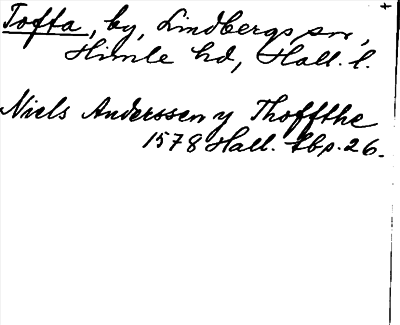 Tofta, by, Lindbergs sn,
Himle hd, Hall. l.
Niels Anderssen y Thoffthe
1578 Hall. tbp. 26.